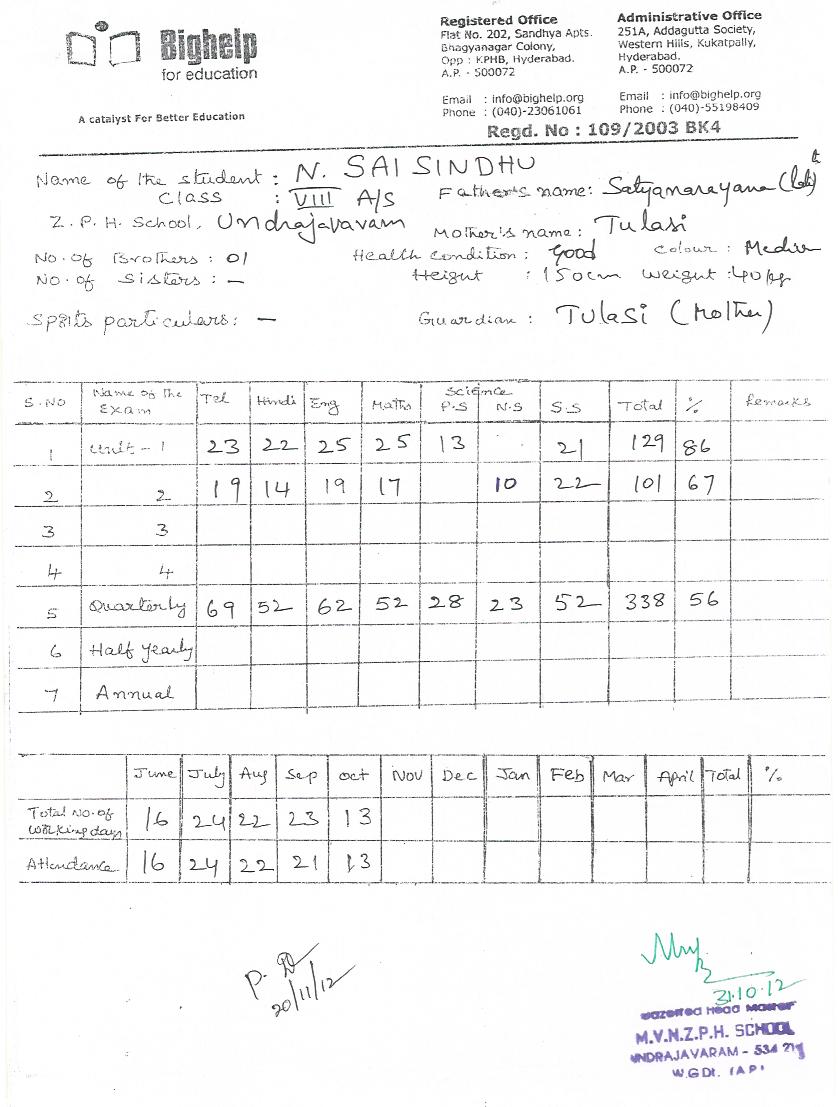 Bighelp
for education
A catalyst For Better Education
Registered Office
Flat No. 202, Sandhya Apts.
Bhagyanagar Colony,
Opp : KPHB, Hyderabad.
A.P. - 500072
Email : info@bighelp.org
Phone : (040)-23061061
Administrative Office
251A, Addagutta Society,
Western Hills, Kukatpally,
Hyderabad.
A.P. - 500072
Email : info@bighelp.org
Phone : (040)-55198409
Regd. No : 109/2003 BK4
Name of the student : N. SAI SINDHU
Class : VIII A/S Father's name: Satyanarayana (late)
Z. P. H. School, Undrajavavam Mother's name : Tulasi
No. of Brothers : 01 Health condition : Good Colour : Medium
No. of Sisters : - Height : 150cm Weight : 40 kg
Sports particulars: - Guardian : Tulasi (Mother)
S.No Name of the Exam Tel Hindi Eng Maths Science P.S N.S S.S Total % Remarks
1 Unit - 1 23 22 25 25 13 21 129 86
2 2 19 14 19 17 10 22 101 67
3 3
4 4
5 Quarterly 69 52 62 52 28 23 52 338 56
6 Half yearly
7 Annual
June July Aug Sep Oct Nov Dec Jan Feb Mar April Total %
Total No. of working days 16 24 22 23 13
Attendance 16 24 22 21 13
20/11/12
31.10.12
Gazetted Head Master
M.V.N.Z.P.H. SCHOOL
UNDRAJAVARAM - 534 21
W.G Dt. (A P)